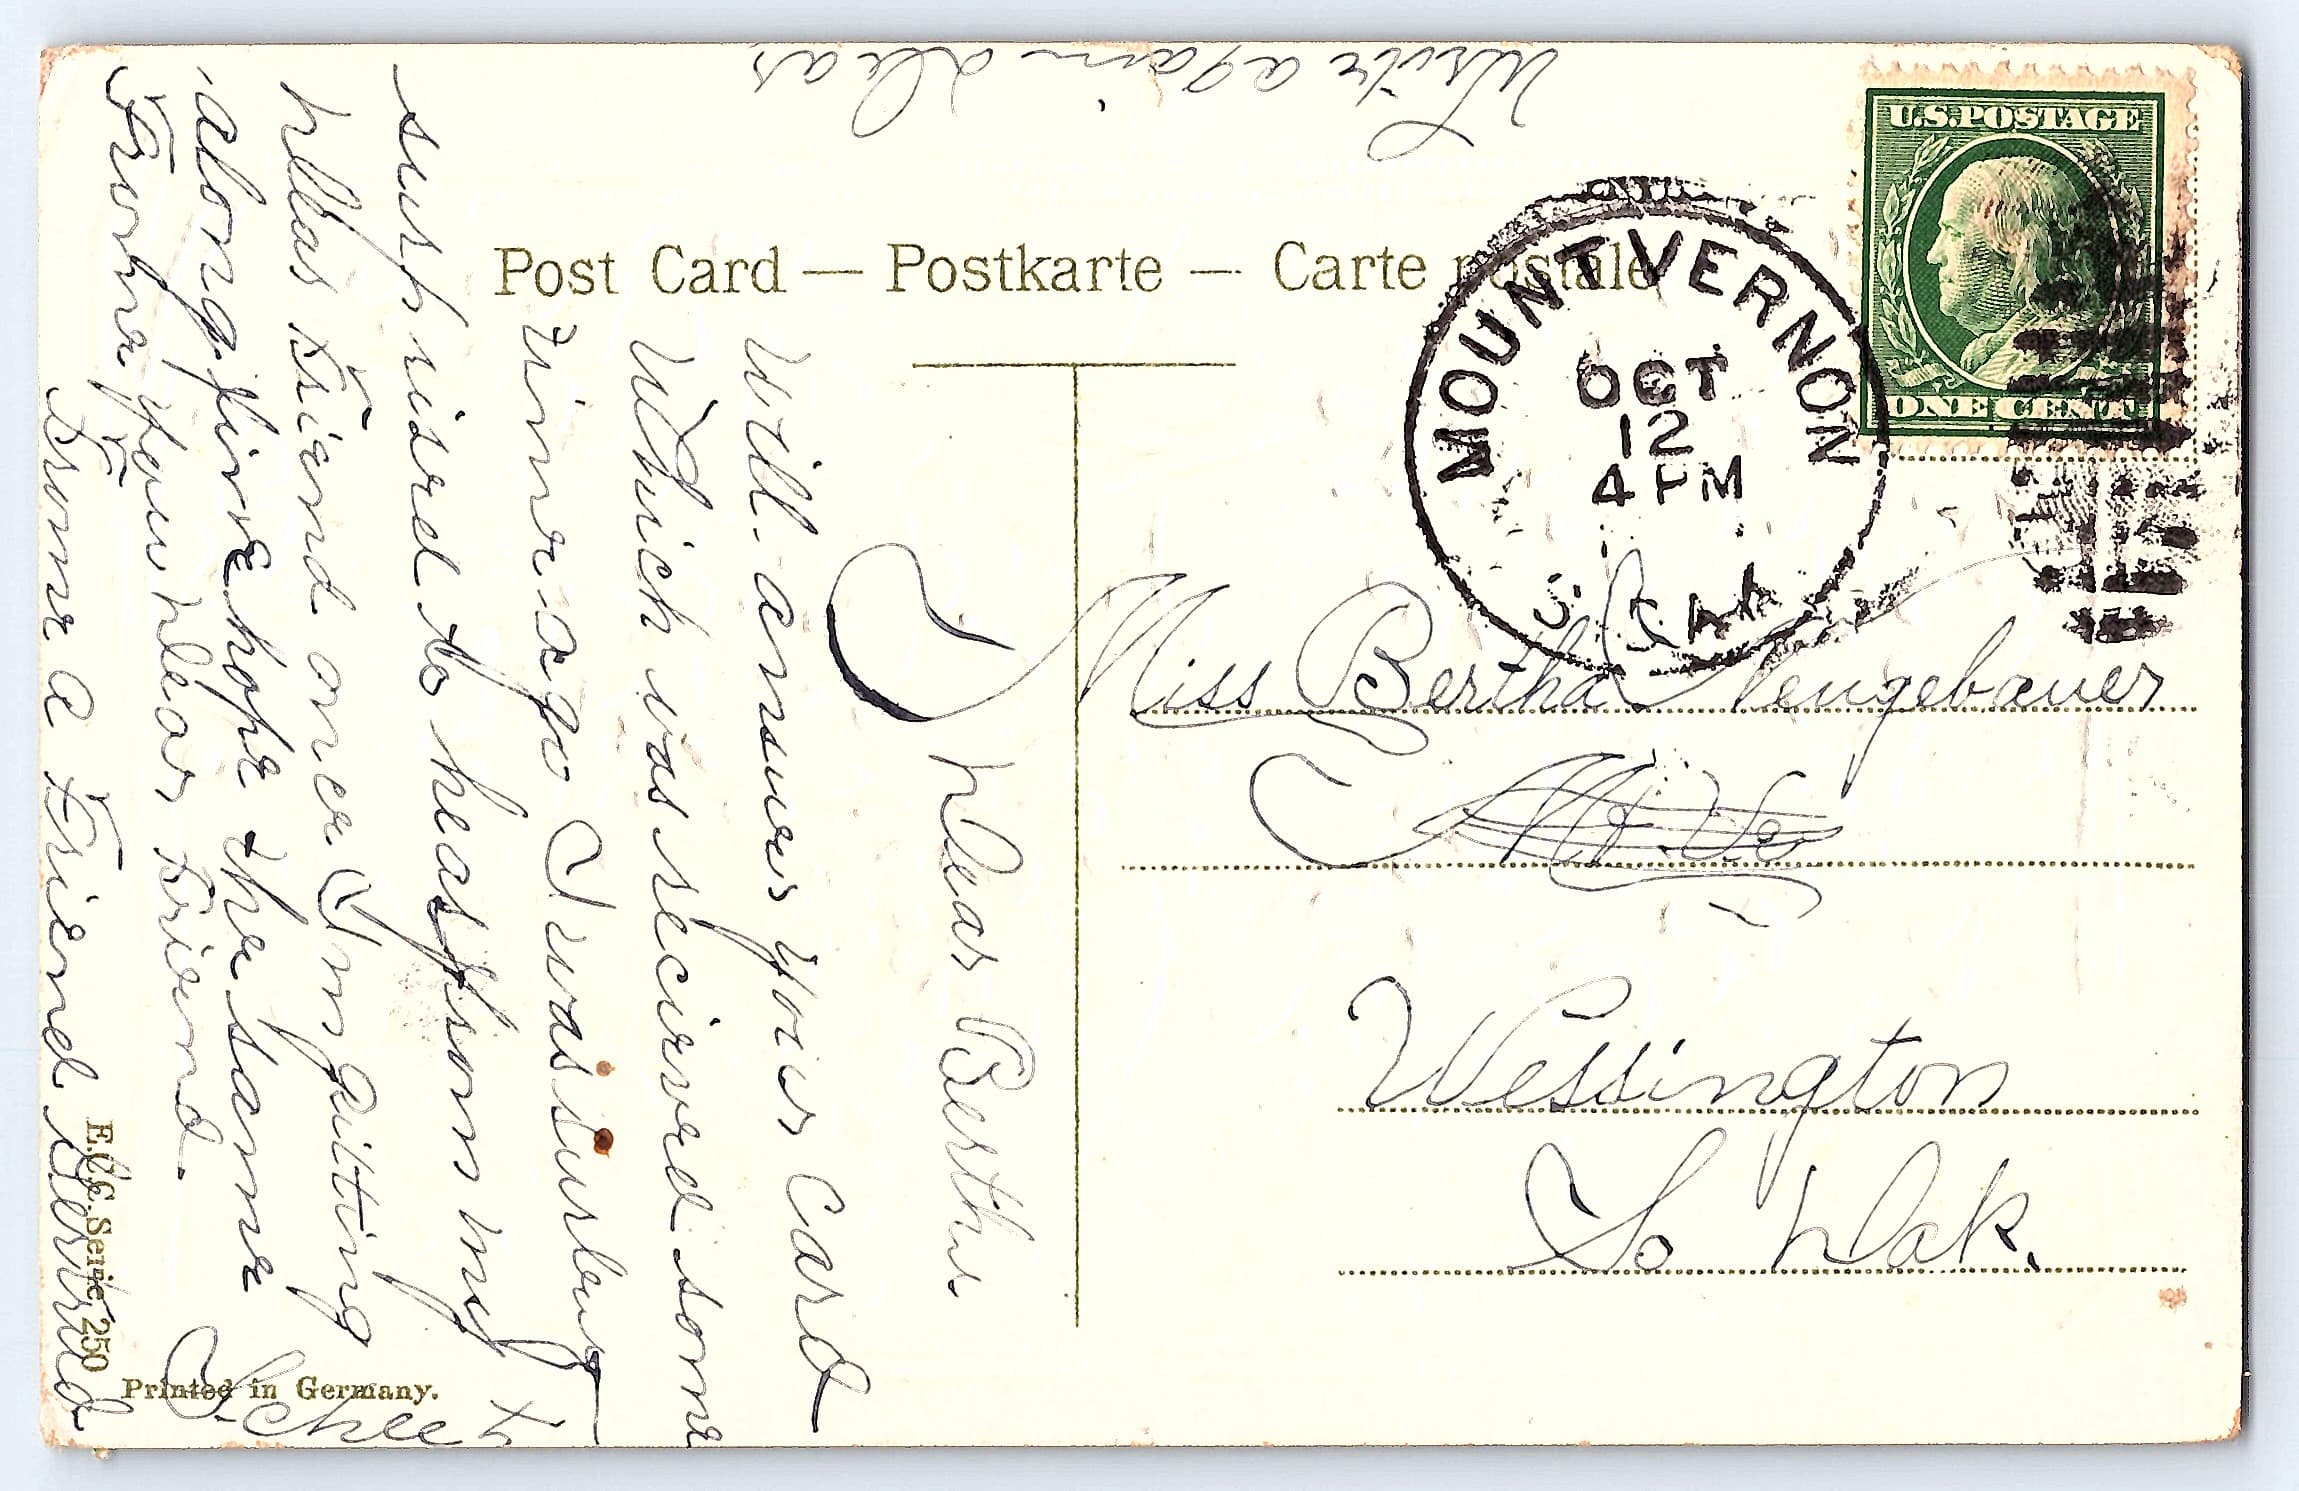 Post Card — Postkarte — Carte postale
U.S. POSTAGE
ONE CENT
MOUNT VERNON
OCT
12
4 PM
S. DAK
Miss Bertha Neugebauer
Mt. Ve
Wessington
So Dak.
Dear Bertha
Will answer your Card
Which was recieved some
time ago I was surley
suprised to hear from my
Dear Friend once I'm gitting
along fine hope the same
From your Dear Friend.
From a Friend Bernard
Write again Dear
E.C.C. Serie 250
Printed in Germany.